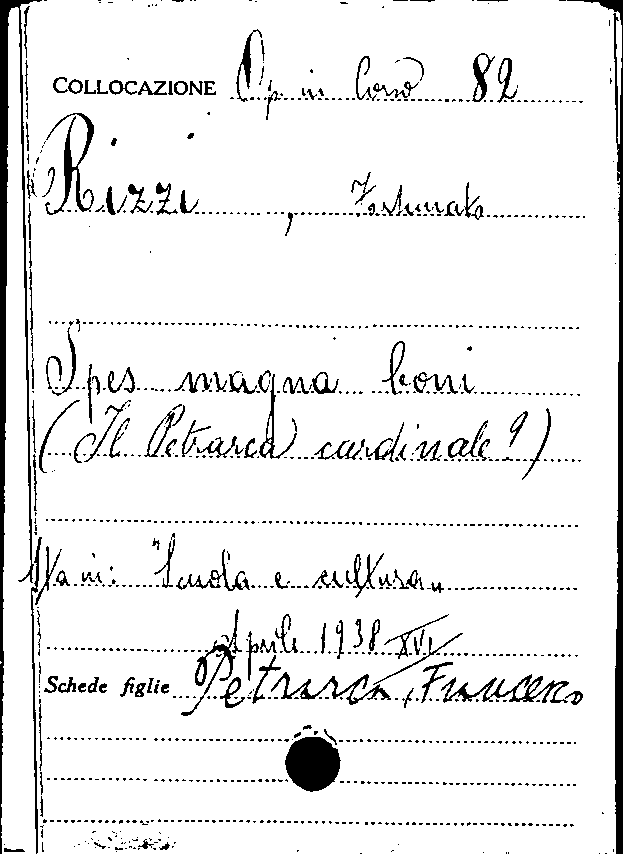 COLLOCAZIONE Op in Corso 82
Rizzi , Fortunato
Spes magna boni
(Il Petrarca cardinale?)
Sta in: "Scuola e cultura"
Aprile 1938 XVI
Schede figlie Petrarca, Francesco